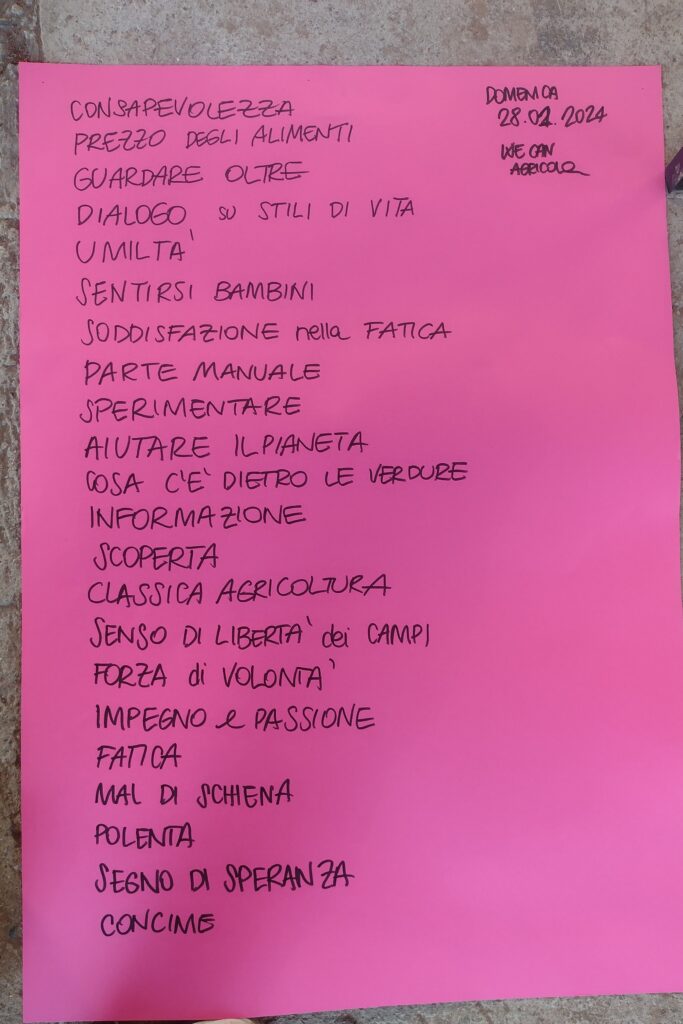 CONSAPEVOLEZZA
PREZZO DEGLI ALIMENTI
GUARDARE OLTRE
DIALOGO SU STILI DI VITA
UMILTA'
SENTIRSI BAMBINI
SODDISFAZIONE nella FATICA
PARTE MANUALE
SPERIMENTARE
AIUTARE IL PIANETA
COSA C'E' DIETRO LE VERDURE
INFORMAZIONE
SCOPERTA
CLASSICA AGRICOLTURA
SENSO DI LIBERTA' dei CAMPI
FORZA di VOLONTA'
IMPEGNO e PASSIONE
FATICA
MAL DI SCHIENA
POLENTA
SEGNO DI SPERANZA
CONCIME
DOMENICA
28.01.2024
WE CAN
AGRICOLO